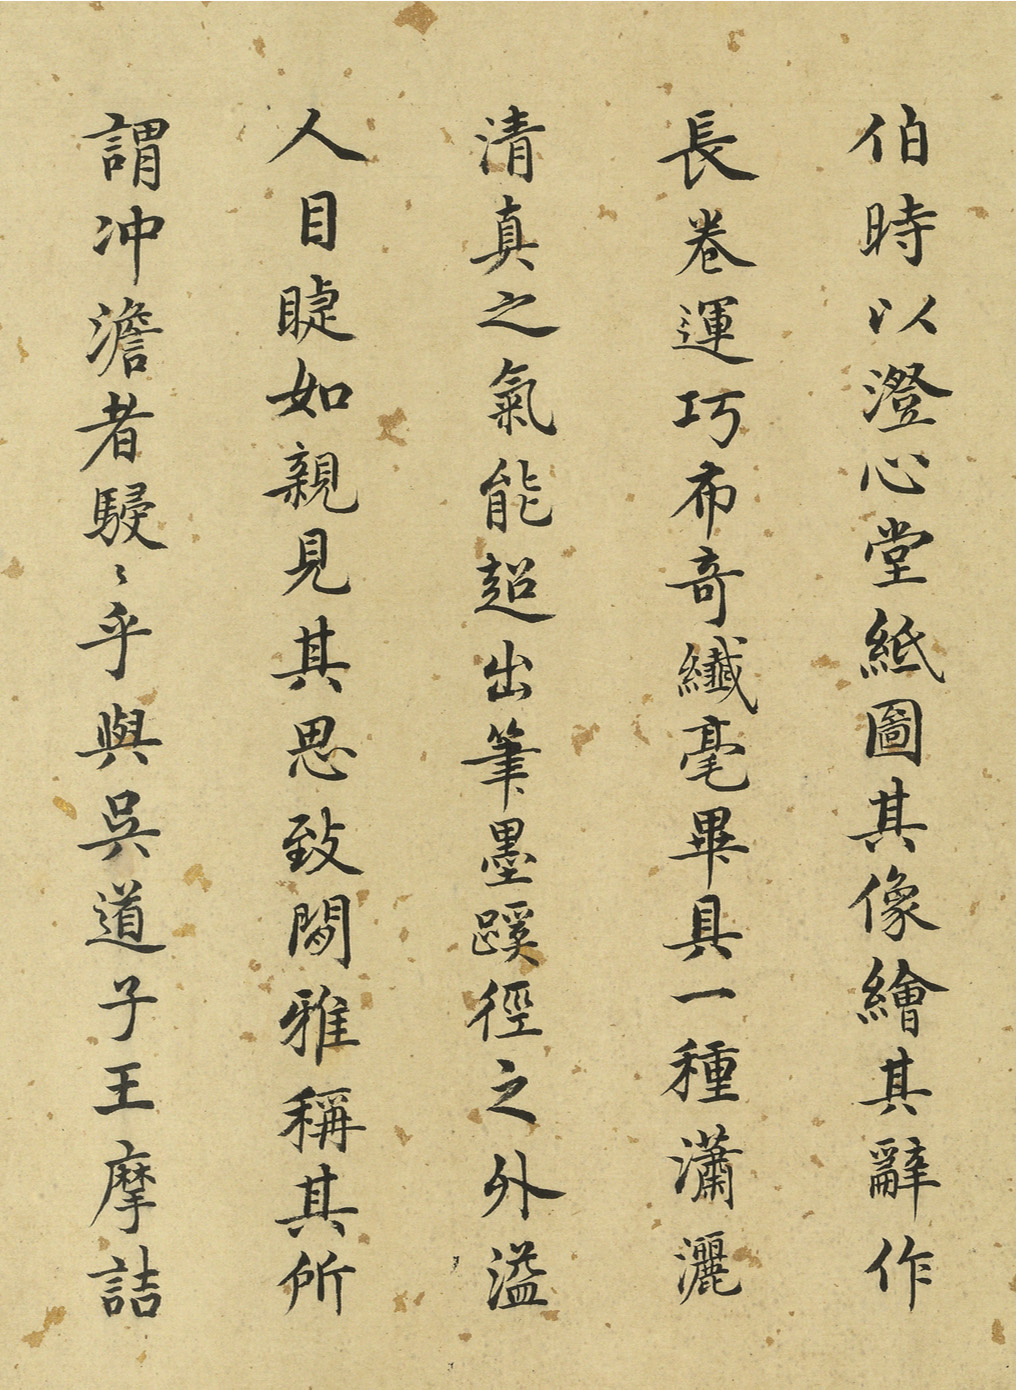 伯時以澄心堂紙圖其像繪其辭作
長卷運巧布奇纖毫畢具一種瀟灑
清真之氣能超出筆墨蹊徑之外溢
人目睫如親見其思致閒雅稱其所
謂冲澹者駸〻乎與吳道子王摩詰